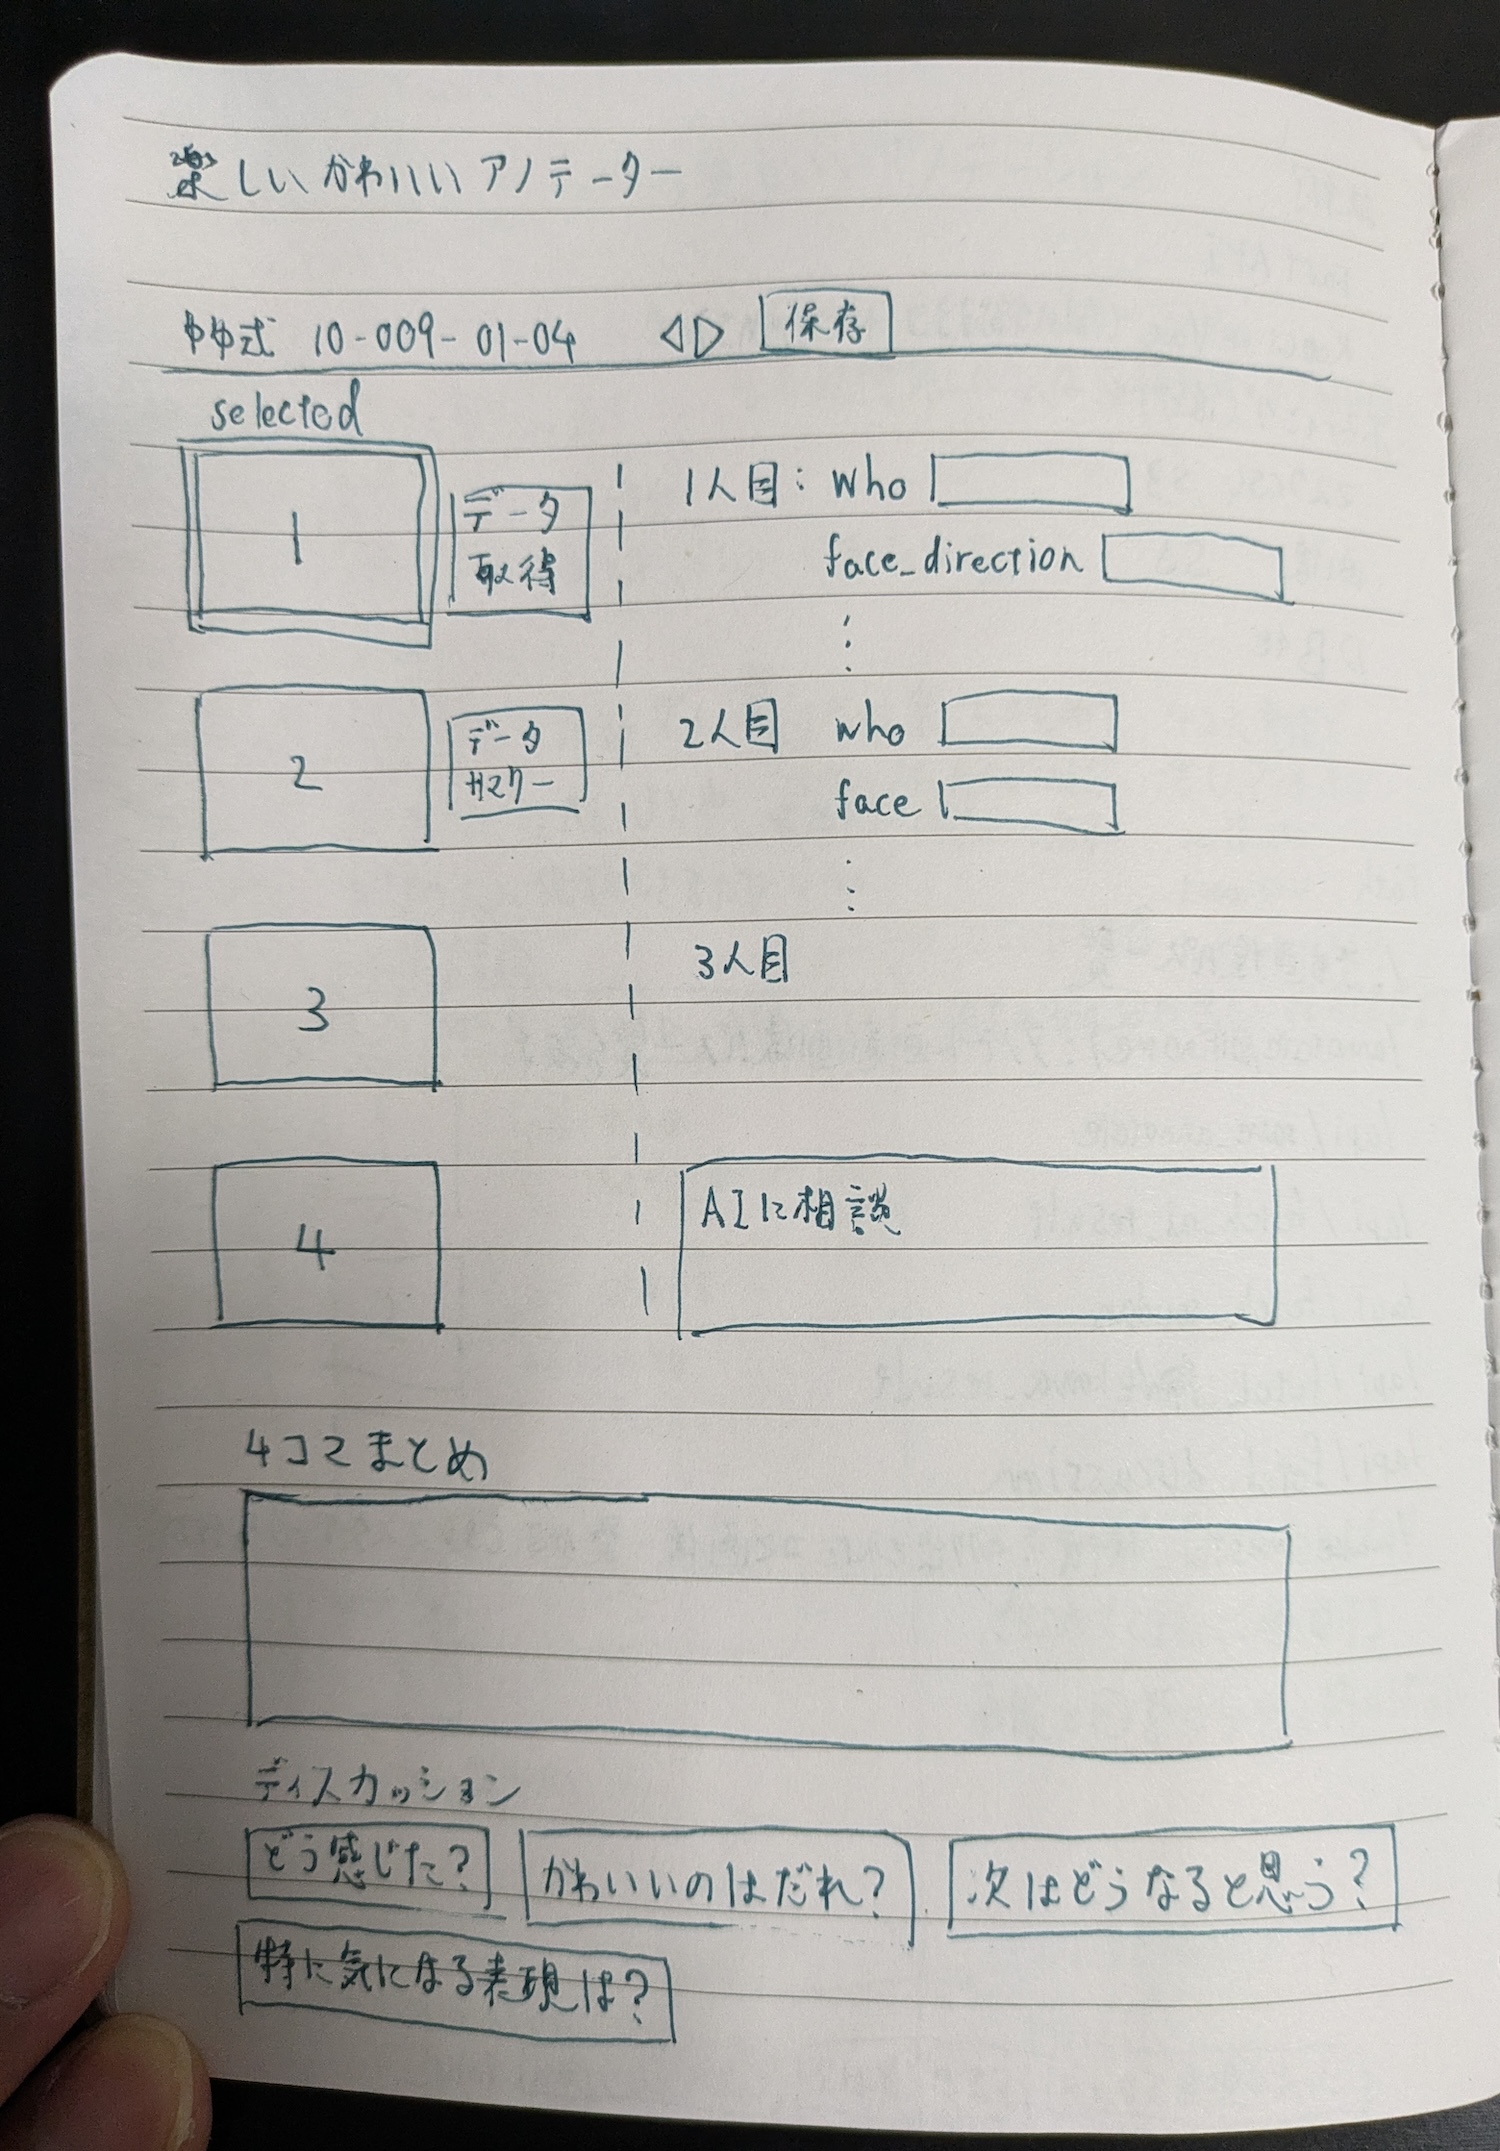 楽しいかわいいアノテーター
中中式 10-009-01-04 ◁▷ 保存
selected
1
データ
取得
1人目: who
face_direction
⋮
2
データ
2人目 who
face
⋮
3
3人目
4
AIに相談
4コマまとめ
ディスカッション
どう感じた? かわいいのはだれ? 次はどうなると思う?
特に気になる表現は?